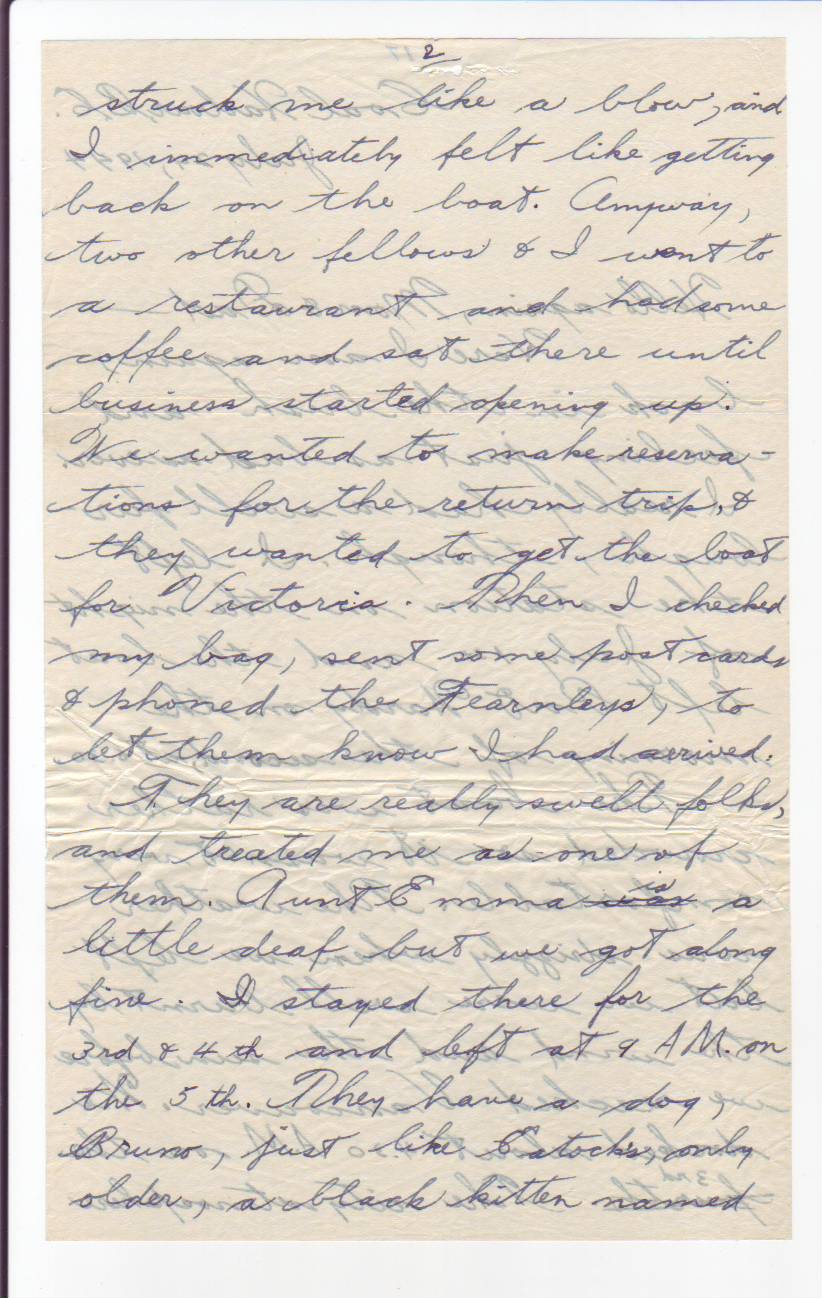 2
struck me like a blow, and
I immediately felt like getting
back on the boat. Anyway,
two other fellows & I went to
a restaurant and had some
coffee and sat there until
business started opening up.
We wanted to make reserva-
tions for the return trip, &
they wanted to get the boat
for Victoria. Then I checked
my bag, sent some post cards
& phoned the Fearnleys, to
let them know I had arrived.
They are really swell folks,
and treated me as one of
them. Aunt Emma was is a
little deaf but we got along
fine. I stayed there for the
3rd & 4th and left at 9 A.M. on
the 5th. They have a dog,
Bruno, just like Catock's, only
older, a black kitten named